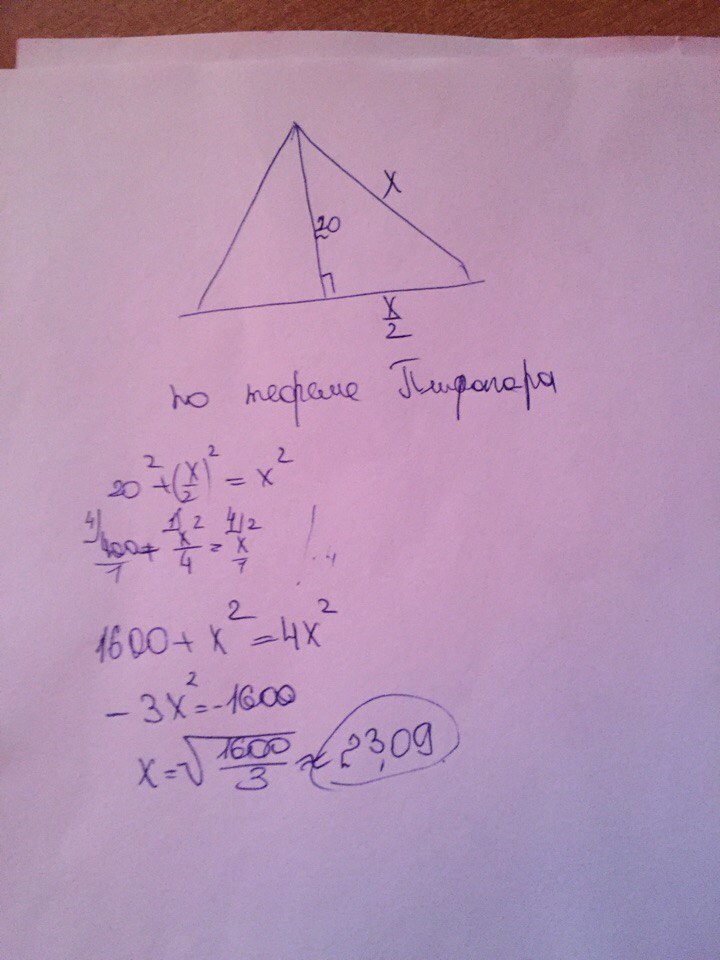 x
20
x/2
по теореме Пифагора
20² + (x/2)² = x²
4) 400/1 + 1) x²/4 = 4) x²/1 | ·4
1600 + x² = 4x²
- 3x² = -1600
x = √(1600/3) ≈ 23,09